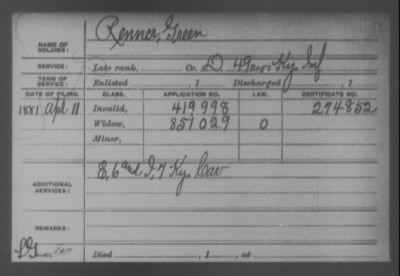 Renner, Green
NAME OF SOLDIER:
SERVICE: Late rank, Co. D. 49 Reg't Ky. Inf
TERM OF SERVICE: Enlisted , 1 Discharged , 1
DATE OF FILING. CLASS. APPLICATION NO. LAW. CERTIFICATE NO.
1881 Apl 11 Invalid, 419998 274852
Widow, 851029 0
Minor,
E, 6 and I, 7 Ky. Cav
ADDITIONAL SERVICES:
REMARKS:
Died , 1 , at